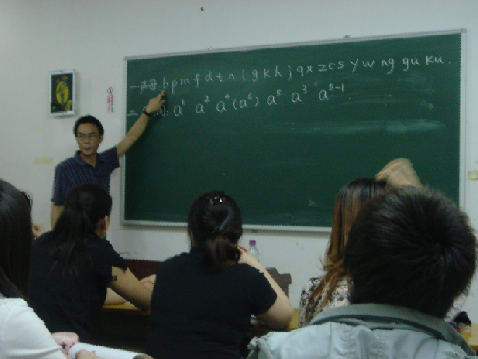 一、声母 b p m f d t n l g k h j q x z c s y w ng gu ku.
二、 a¹ a² a⁴(a⁶) a⁵ a³ a⁵⁻¹